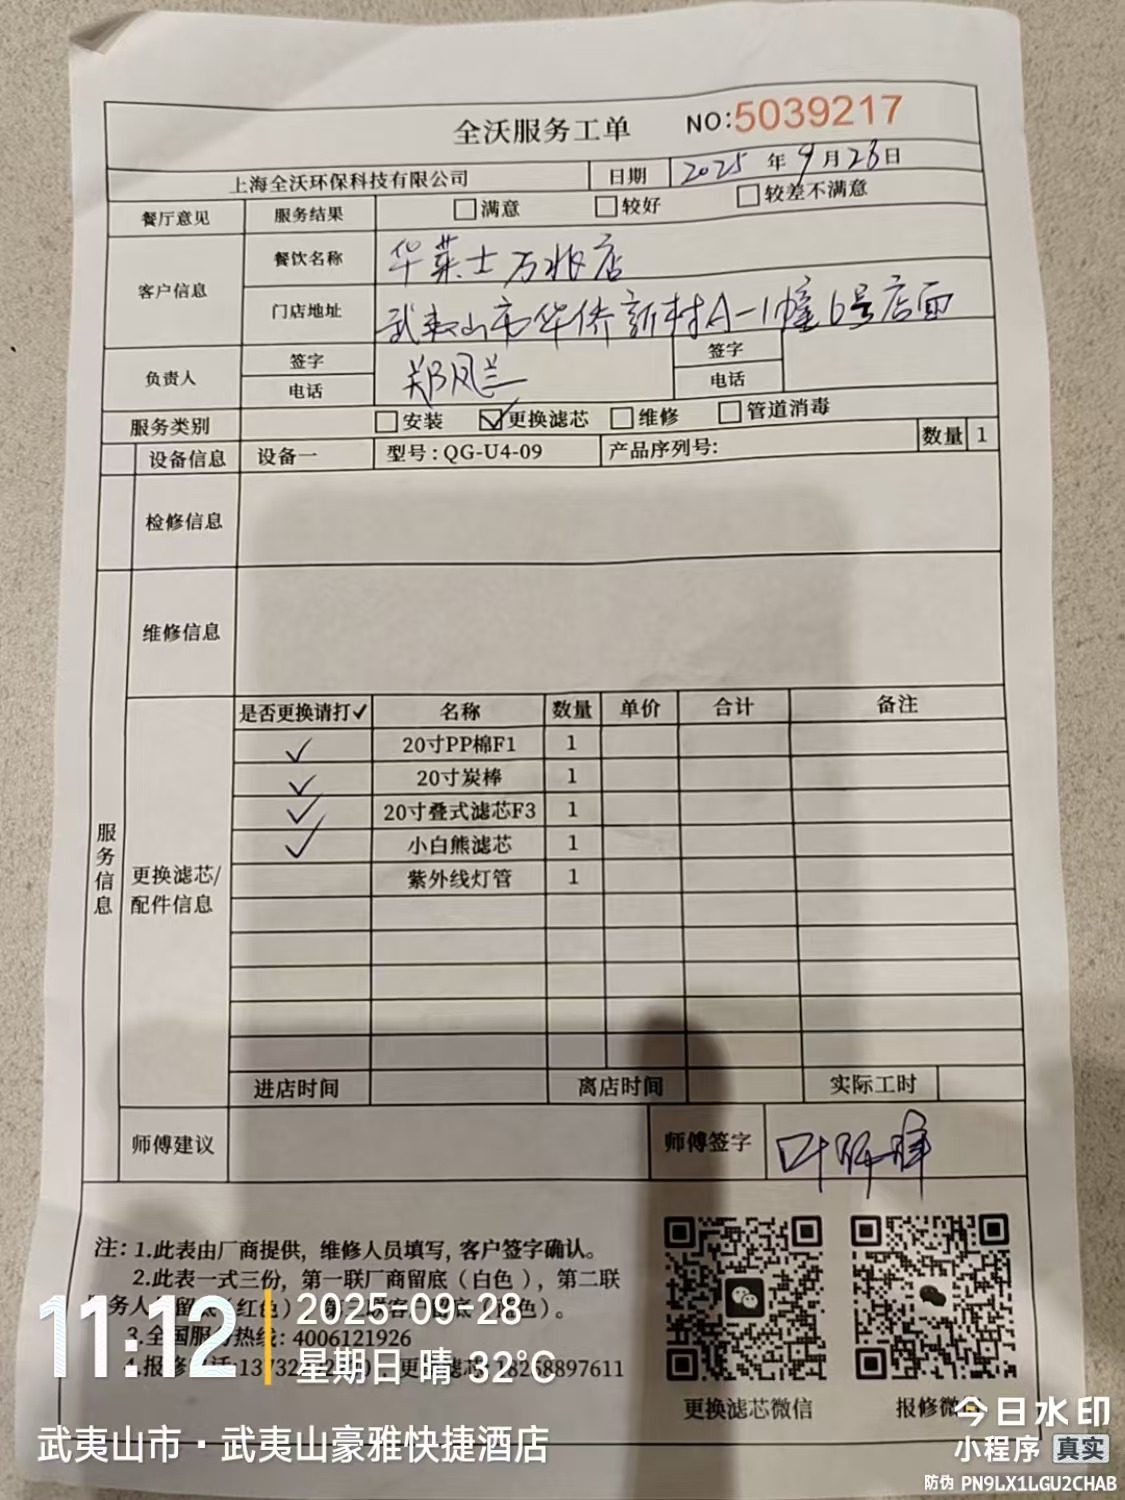 全沃服务工单 NO:5039217
上海全沃环保科技有限公司 日期 2025年9月28日
餐厅意见 服务结果 □满意 □较好 □较差不满意
客户信息 餐饮名称 华莱士万兆店
门店地址 武夷山市华侨新村A-1幢6号店面
负责人 签字 郑凤兰 签字
电话 电话
服务类别 □安装 ☑更换滤芯 □维修 □管道消毒
设备信息 设备一 型号:QG-U4-09 产品序列号: 数量 1
检修信息
维修信息
服务信息
更换滤芯/配件信息
是否更换请打✓ 名称 数量 单价 合计 备注
✓ 20寸PP棉F1 1
✓ 20寸炭棒 1
✓ 20寸叠式滤芯F3 1
✓ 小白熊滤芯 1
紫外线灯管 1
进店时间 离店时间 实际工时
师傅建议 师傅签字
注:1.此表由厂商提供,维修人员填写,客户签字确认。
2.此表一式三份,第一联厂商留底(白色),第二联
务人 留底(红色) 联客户留底( 色)。
3.全国服务热线:4006121926
4.报修 话:13732 更 滤芯 18258897611
更换滤芯微信 报修微
11:12 2025-09-28
星期日 晴 32℃
武夷山市·武夷山豪雅快捷酒店
今日水印
小程序 真实
防伪 PN9LX1LGU2CHAB